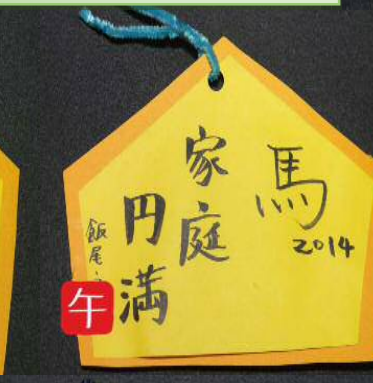 馬
2014
家庭
円満
飯尾
午